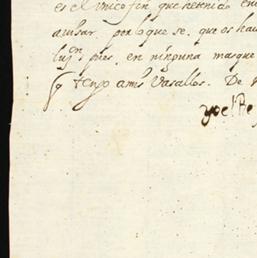 es el unico fin que he tenido en
avisar. por lo que se. que os hau
pues, en ninguna mas que
q tengo a mis Vasallos. De
yo el Rey